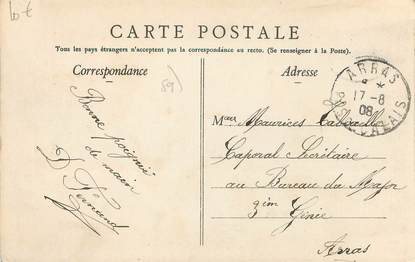 CARTE POSTALE
Tous les pays étrangers n'acceptent pas la correspondance au recto. (Se renseigner à la Poste).
Correspondance
Adresse
ARRAS
17-8
08
PAS-DE-CALAIS
89
Bonne poignée
de main
D Fernand
Maurices
Caporal Secrétaire
au Bureau du Major
Génie
Arras